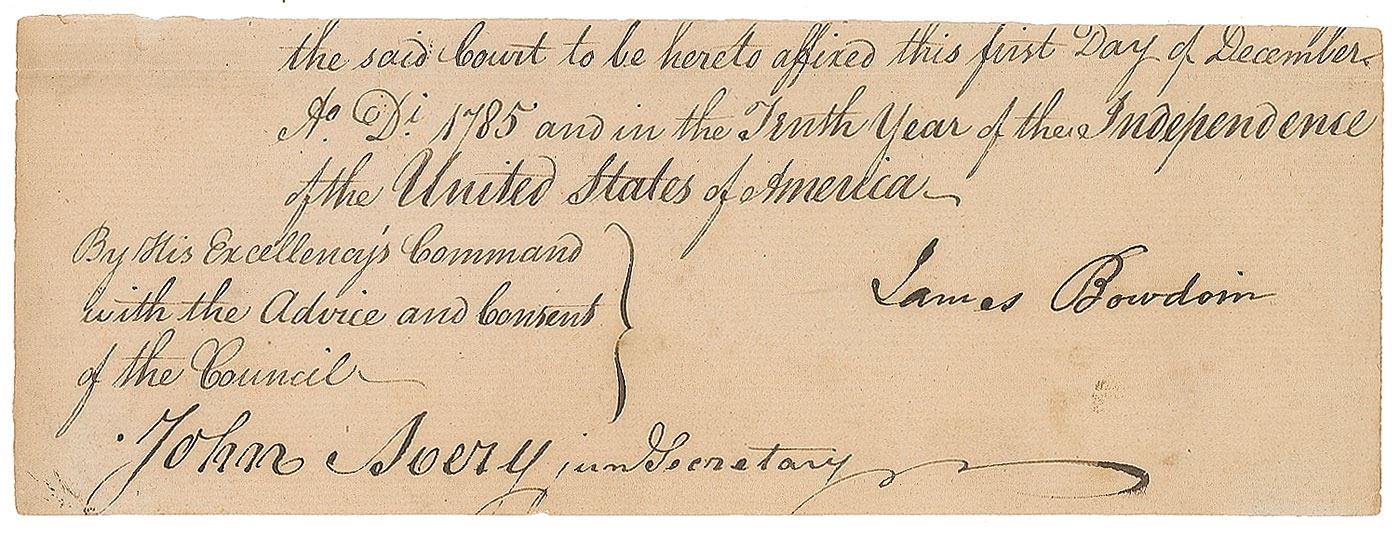 the said Court to be hereto affixed this first Day of December
Ao Di 1785 and in the Tenth Year of the Independence
of the United States of America
By His Excellency's Command
with the Advice and Consent
of the Council
James Bowdoin
John Avery jun Secretary